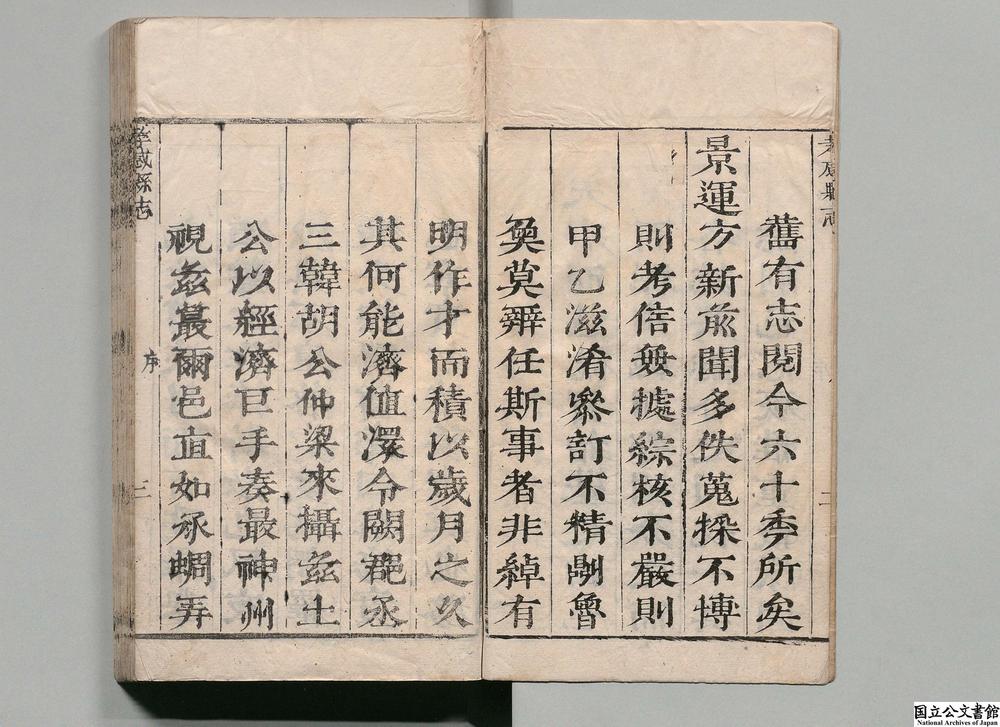 舊有志閱今六十季所矣
景運方新前聞多佚蒐採不博
則考信無據綜核不嚴則
甲乙滋淆叅訂不精剮魯
奐莫辨任斯事者非綽有
明作才而積以歲月之久
其何能濟值澴令闕郡丞
三韓胡公仲梁來攝茲土
公以經濟巨手奏最神州
視茲蕞爾邑直如承蜩弄
孝感縣志
序
三
孝感縣志
二
国立公文書館
National Archives of Japan